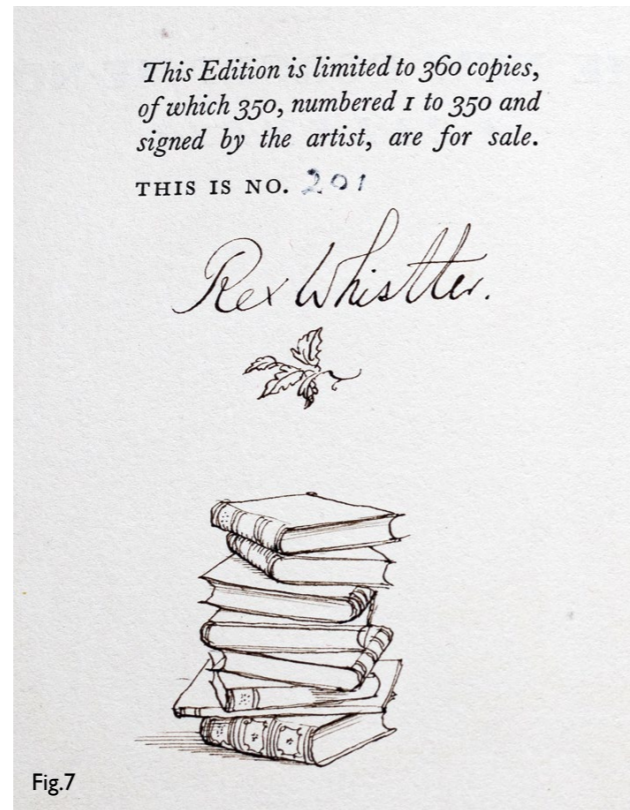 This Edition is limited to 360 copies,
of which 350, numbered 1 to 350 and
signed by the artist, are for sale.
THIS IS NO. 201
Rex Whistler.
Fig.7